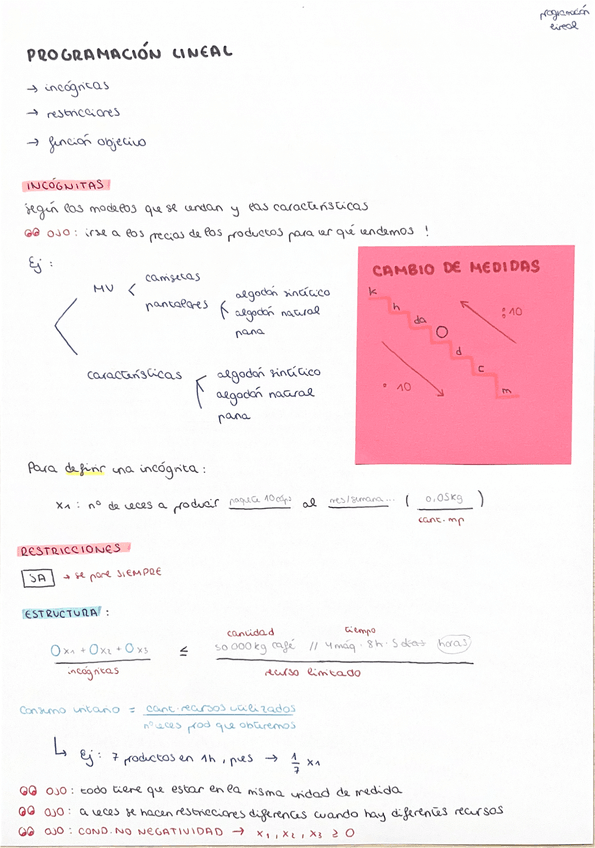 programación
lineal
PROGRAMACIÓN LINEAL
→ incógnitas
→ restricciones
→ función objetivo
INCÓGNITAS
según los modelos que se vendan y las características
OJO: irse a los precios de los productos para ver qué vendemos !
Ej:
MV
camisetas
pantalones
algodón sintético
algodón natural
pana
características
algodón sintético
algodón natural
pana
CAMBIO DE MEDIDAS
k
h
da
O
d
c
m
: 10
· 10
Para definir una incógnita:
x1: nº de veces a producir paquete 10 caps al mes/semana... ( 0.05kg )
cant. mp
RESTRICCIONES
SA → se pone SIEMPRE
ESTRUCTURA:
cantidad tiempo
0x1 + 0x2 + 0x3 ≤ 50.000 kg café // 4 máq · 8h · 5 días horas
incógnitas recurso limitado
Consumo unitario = cant. recursos utilizados
nº veces prod que obtenemos
Ej: 7 productos en 1h, pues → 1/7 x1
OJO: todo tiene que estar en la misma unidad de medida
OJO: a veces se hacen restricciones diferentes cuando hay diferentes recursos
OJO: COND. NO NEGATIVIDAD → x1, x2, x3 ≥ 0